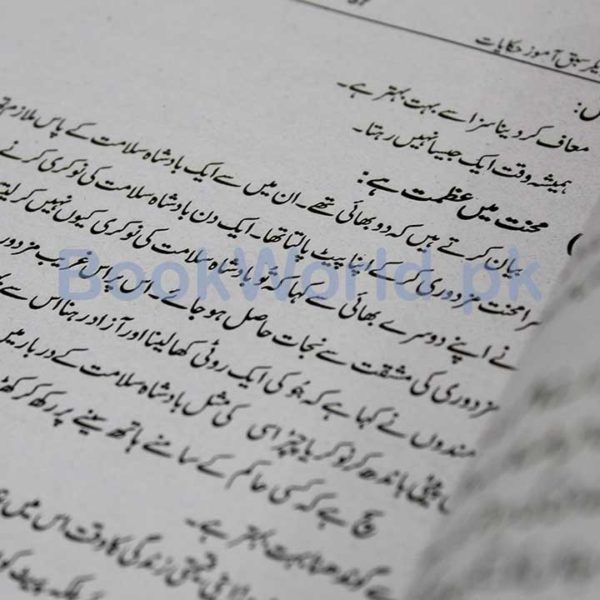 سبق آموز حکایات
معاف کر دینا سزا سے بہت بہتر ہے۔
ہمیشہ وقت ایک جیسا نہیں رہتا۔
محنت میں عظمت ہے:
بیان کرتے ہیں کہ دو بھائی تھے۔ ان میں سے ایک بادشاہ سلامت کے پاس ملازم
محنت مزدوری کر کے اپنا پیٹ پالتا تھا۔ ایک دن بادشاہ سلامت کی نوکری کرنے
نے اپنے دوسرے بھائی سے کہا کہ تو بادشاہ سلامت کی نوکری کیوں نہیں کر لیتا
مزدوری کی مشقت سے نجات حاصل ہو جائے۔ اس پر اس غریب مزدور
مندوں نے کہا ہے کہ جُو کی ایک روٹی کھا لینا اور آزاد رہنا اس سے
پیٹی باندھ کر نوکر یا چپڑاسی کی مثل بادشاہ سلامت کے دربار میں
سچ ہے کہ کسی حاکم کے سامنے ہاتھ سینے پر رکھ کر
سے گوندھنا بہت بہتر ہے۔
قیمتی زندگی کا وقت اس میں
BookWorld.pk